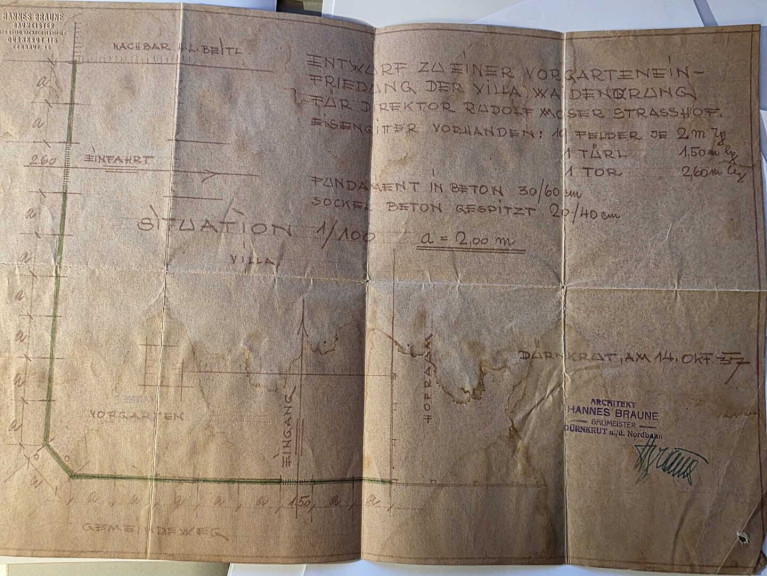 HANNES BRAUNE
BAUMEISTER
DÜRNKRUT
NACHBAR BEITL
ENTWURF ZU EINER VORGARTENEIN-
FRIEDUNG DER VILLA
FÜR DIREKTOR RUDOLF MOSER STRASSHOF.
EISENGITTER VORHANDEN: FELDER JE 2 m lg
1 TÜRL 1,50 m lg
1 TOR 2,60 m lg
a
a
260
EINFAHRT
FUNDAMENT IN BETON 30/60 cm
SOCKEL BETON GESPITZT 20/40 cm
SITUATION 1/100
a = 2,00 m
VILLA
a
a
a
a
a
DÜRNKRUT, AM 14. OKT 37
HOFRAUM
EINGANG
VORGARTEN
ARCHITEKT
HANNES BRAUNE
BAUMEISTER
DÜRNKRUT a./d. Nordbahn
Braune
a
a a a a 150 a a
GEMEINDEWEG